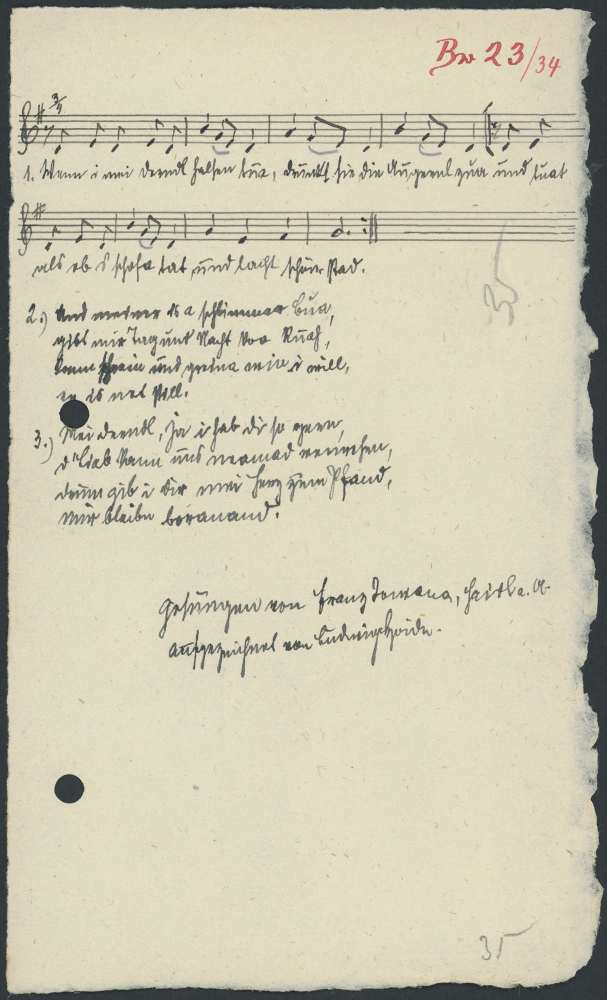 Bw 23/34
3/4
1. Wenn i mei Derndl halsen tua, druckt sie die Äugerl zua und tuat
als ob s schlafa tat und lacht schön stad.
35
2.) Und meiner is a schlimmer Bua,
gibt mir Tag und Nacht koa Ruah,
denn schrein und greina wie i will,
er is net still.
3.) Mei Derndl, ja i hab di so gern,
d'Liab kann uns neamad verwehren,
drum gib i dir mei Herz zum Pfand,
mir bleibn beranand.
Gesungen von Franz a. A.
aufgezeichnet von Ludwig
35